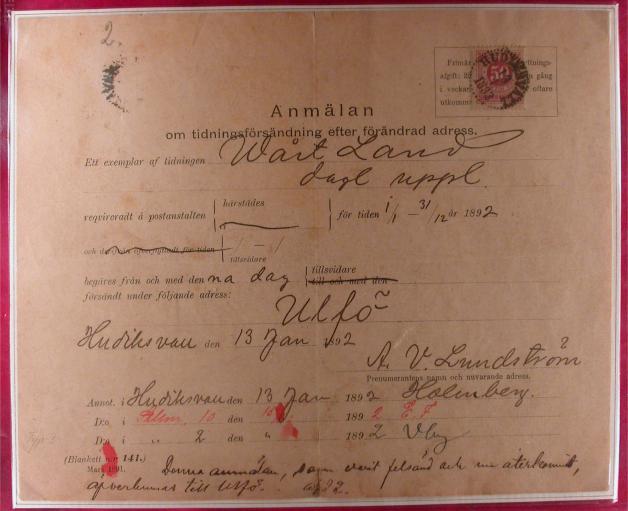 2.
Frimär ttnings-
afgift: 25 n gång
i veckan oftare
utkomm
50
HUDIKSVALL
1892
Anmälan
om tidningsförsändning efter förändrad adress.
Ett exemplar af tidningen Wårt Land
dagl uppl.
reqvireradt å postanstalten härstädes för tiden 1/1 – 31/12 år 1892
och för tiden 1/1 – 31
tillsvidare
begäres från och med den na dag tillsvidare
till och med den
försändt under följande adress:
Ulfö
Hudiksvall den 13 Jan 1892
A. V. Lundström
Prenumerantens namn och nuvarande adress.
Annot. i Hudiksvall den 13 Jan 1892 Holmberg.
D:o i 10 den 16 1892 E. F
D:o i „ 2 den „ 1892
(Blankett n:r 141.)
Mars 1891.
Denna anmälan, som varit felsänd och nu återkommit,
till Ulfö.